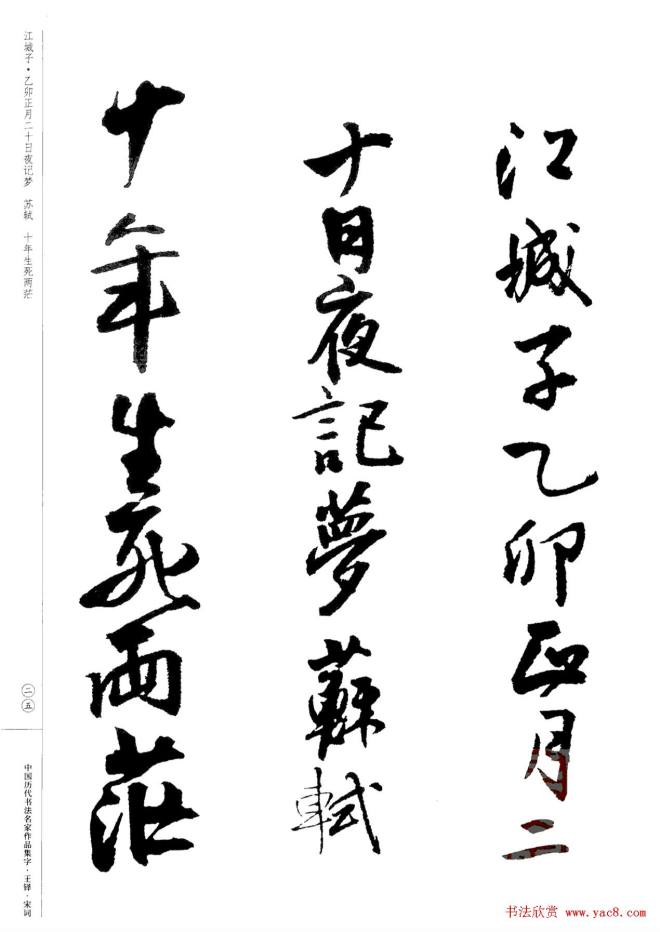 江城子乙卯正月二
十日夜記夢蘇軾
十年生死兩茫
江城子·乙卯正月二十日夜记梦 苏轼 十年生死两茫
二五
中国历代书法名家作品集字·王铎·宋词
书法欣赏 www.yac8.com